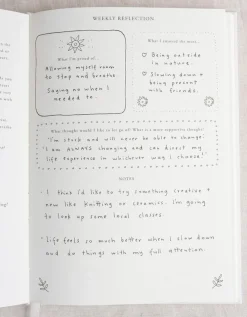 WEEKLY REFLECTION
What I'm proud of...
Allowing myself room
to stop and breathe.
Saying no when I
needed to..
What I enjoyed the most...
Being outside
in nature.
Slowing down +
being present
with friends.
What thought would I like to let go of? What is a more supportive thought?
"I'm stuck and will never be able to change."
"I am ALWAYS changing and can direct my
life experience in whichever way I choose!"
NOTES
· I think I'd like to try something creative +
new like knitting or ceramics. I'm going
to look up some local classes.
· Life feels so much better when I slow down
and do things with my full attention.